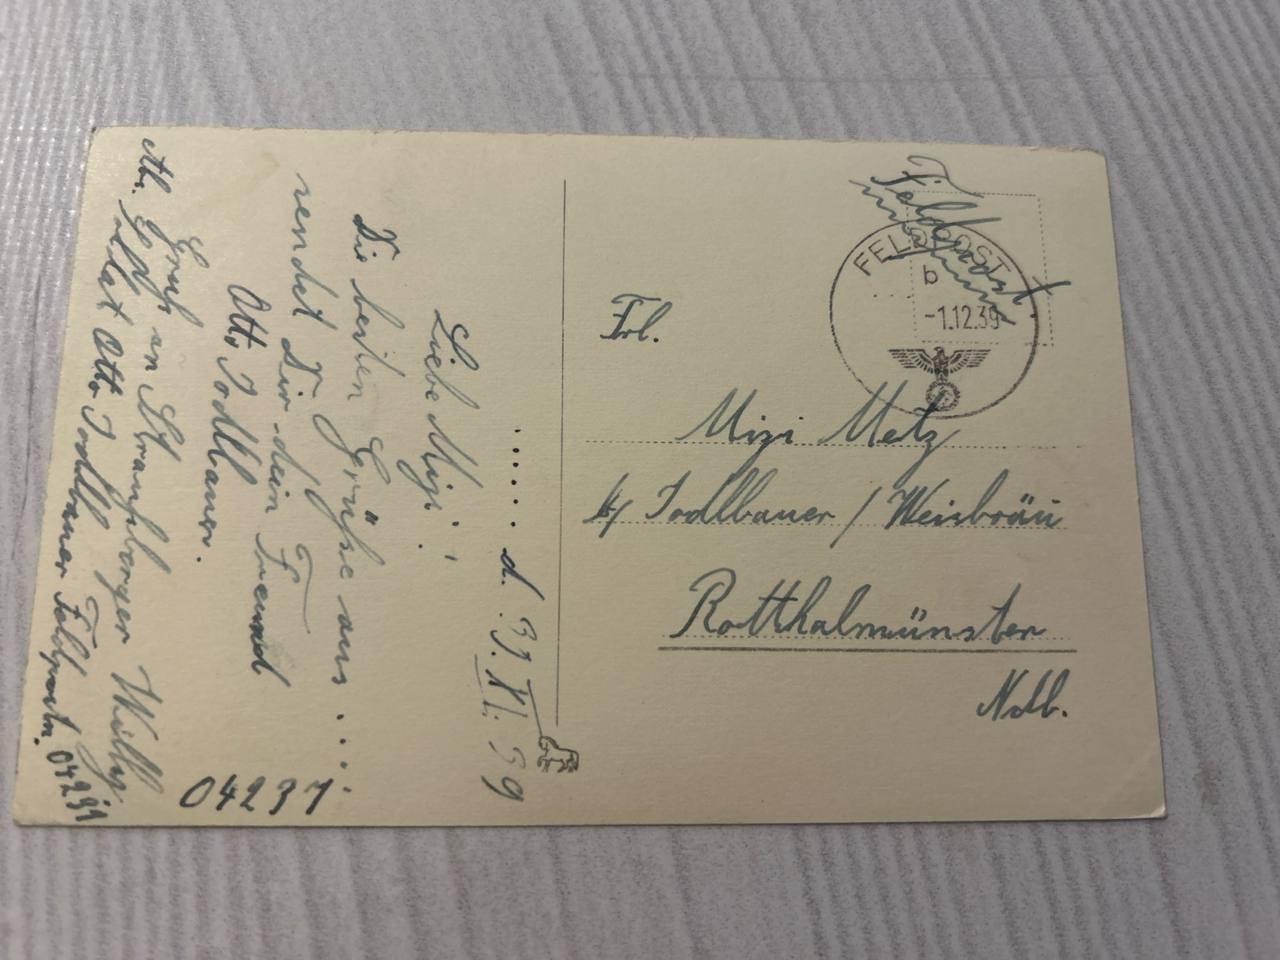 ..... d. 3. XI. 39
Liebe Mizi!
Die besten Grüße aus ....
sendet Dir dein Freund
Otto Jodlbauer.
04237
Gruß an Straußberger Willy
Abs. Gefr.
Otto Jodlbauer Feldpostn. 04237
Feldpost.
FELDPOST
b
-1.12.39
Frl.
Mizi Metz
b/ Jodlbauer / Weisbräu
Rotthalmünster
Ndb.